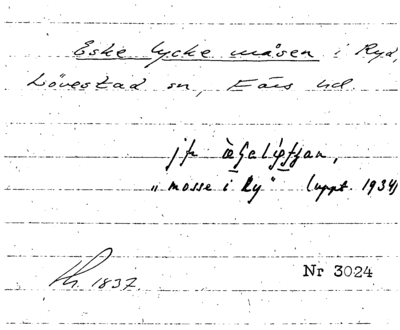 Eske lycke måsen i Ryd,
Lövestad sn, Färs hd.
jfr
"mosse i Ry" (uppt. 1934)
Nr 3024
1837.